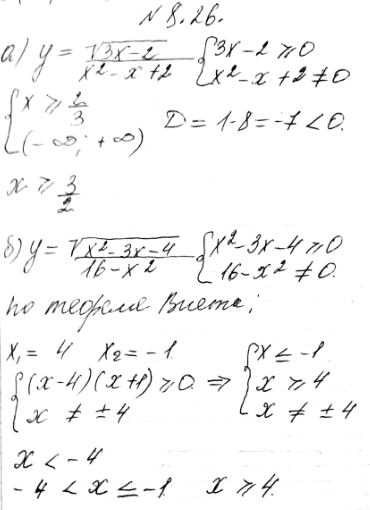 № 8.26.
а) y = √(3x-2) / (x² - x + 2) { 3x - 2 ≥ 0
x² - x + 2 ≠ 0
{ x ≥ 2/3
(-∞; +∞) D = 1-8 = -7 < 0.
x ≥ 3/2
б) y = √(x² - 3x - 4) / (16 - x²) { x² - 3x - 4 ≥ 0
16 - x² ≠ 0.
по теореме Виета;
x₁ = 4 x₂ = -1
{ (x-4)(x+1) ≥ 0 ⇒ { x ≤ -1
x ≥ 4
x ≠ ±4 x ≠ ±4
x < -4
-4 < x ≤ -1 x ≥ 4.